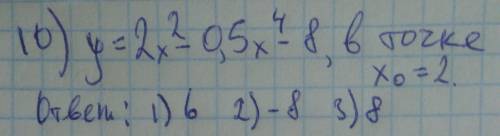 10) y = 2x² - 0,5x⁴ - 8, в точке
x₀ = 2.
Ответ: 1) 6 2) -8 3) 8